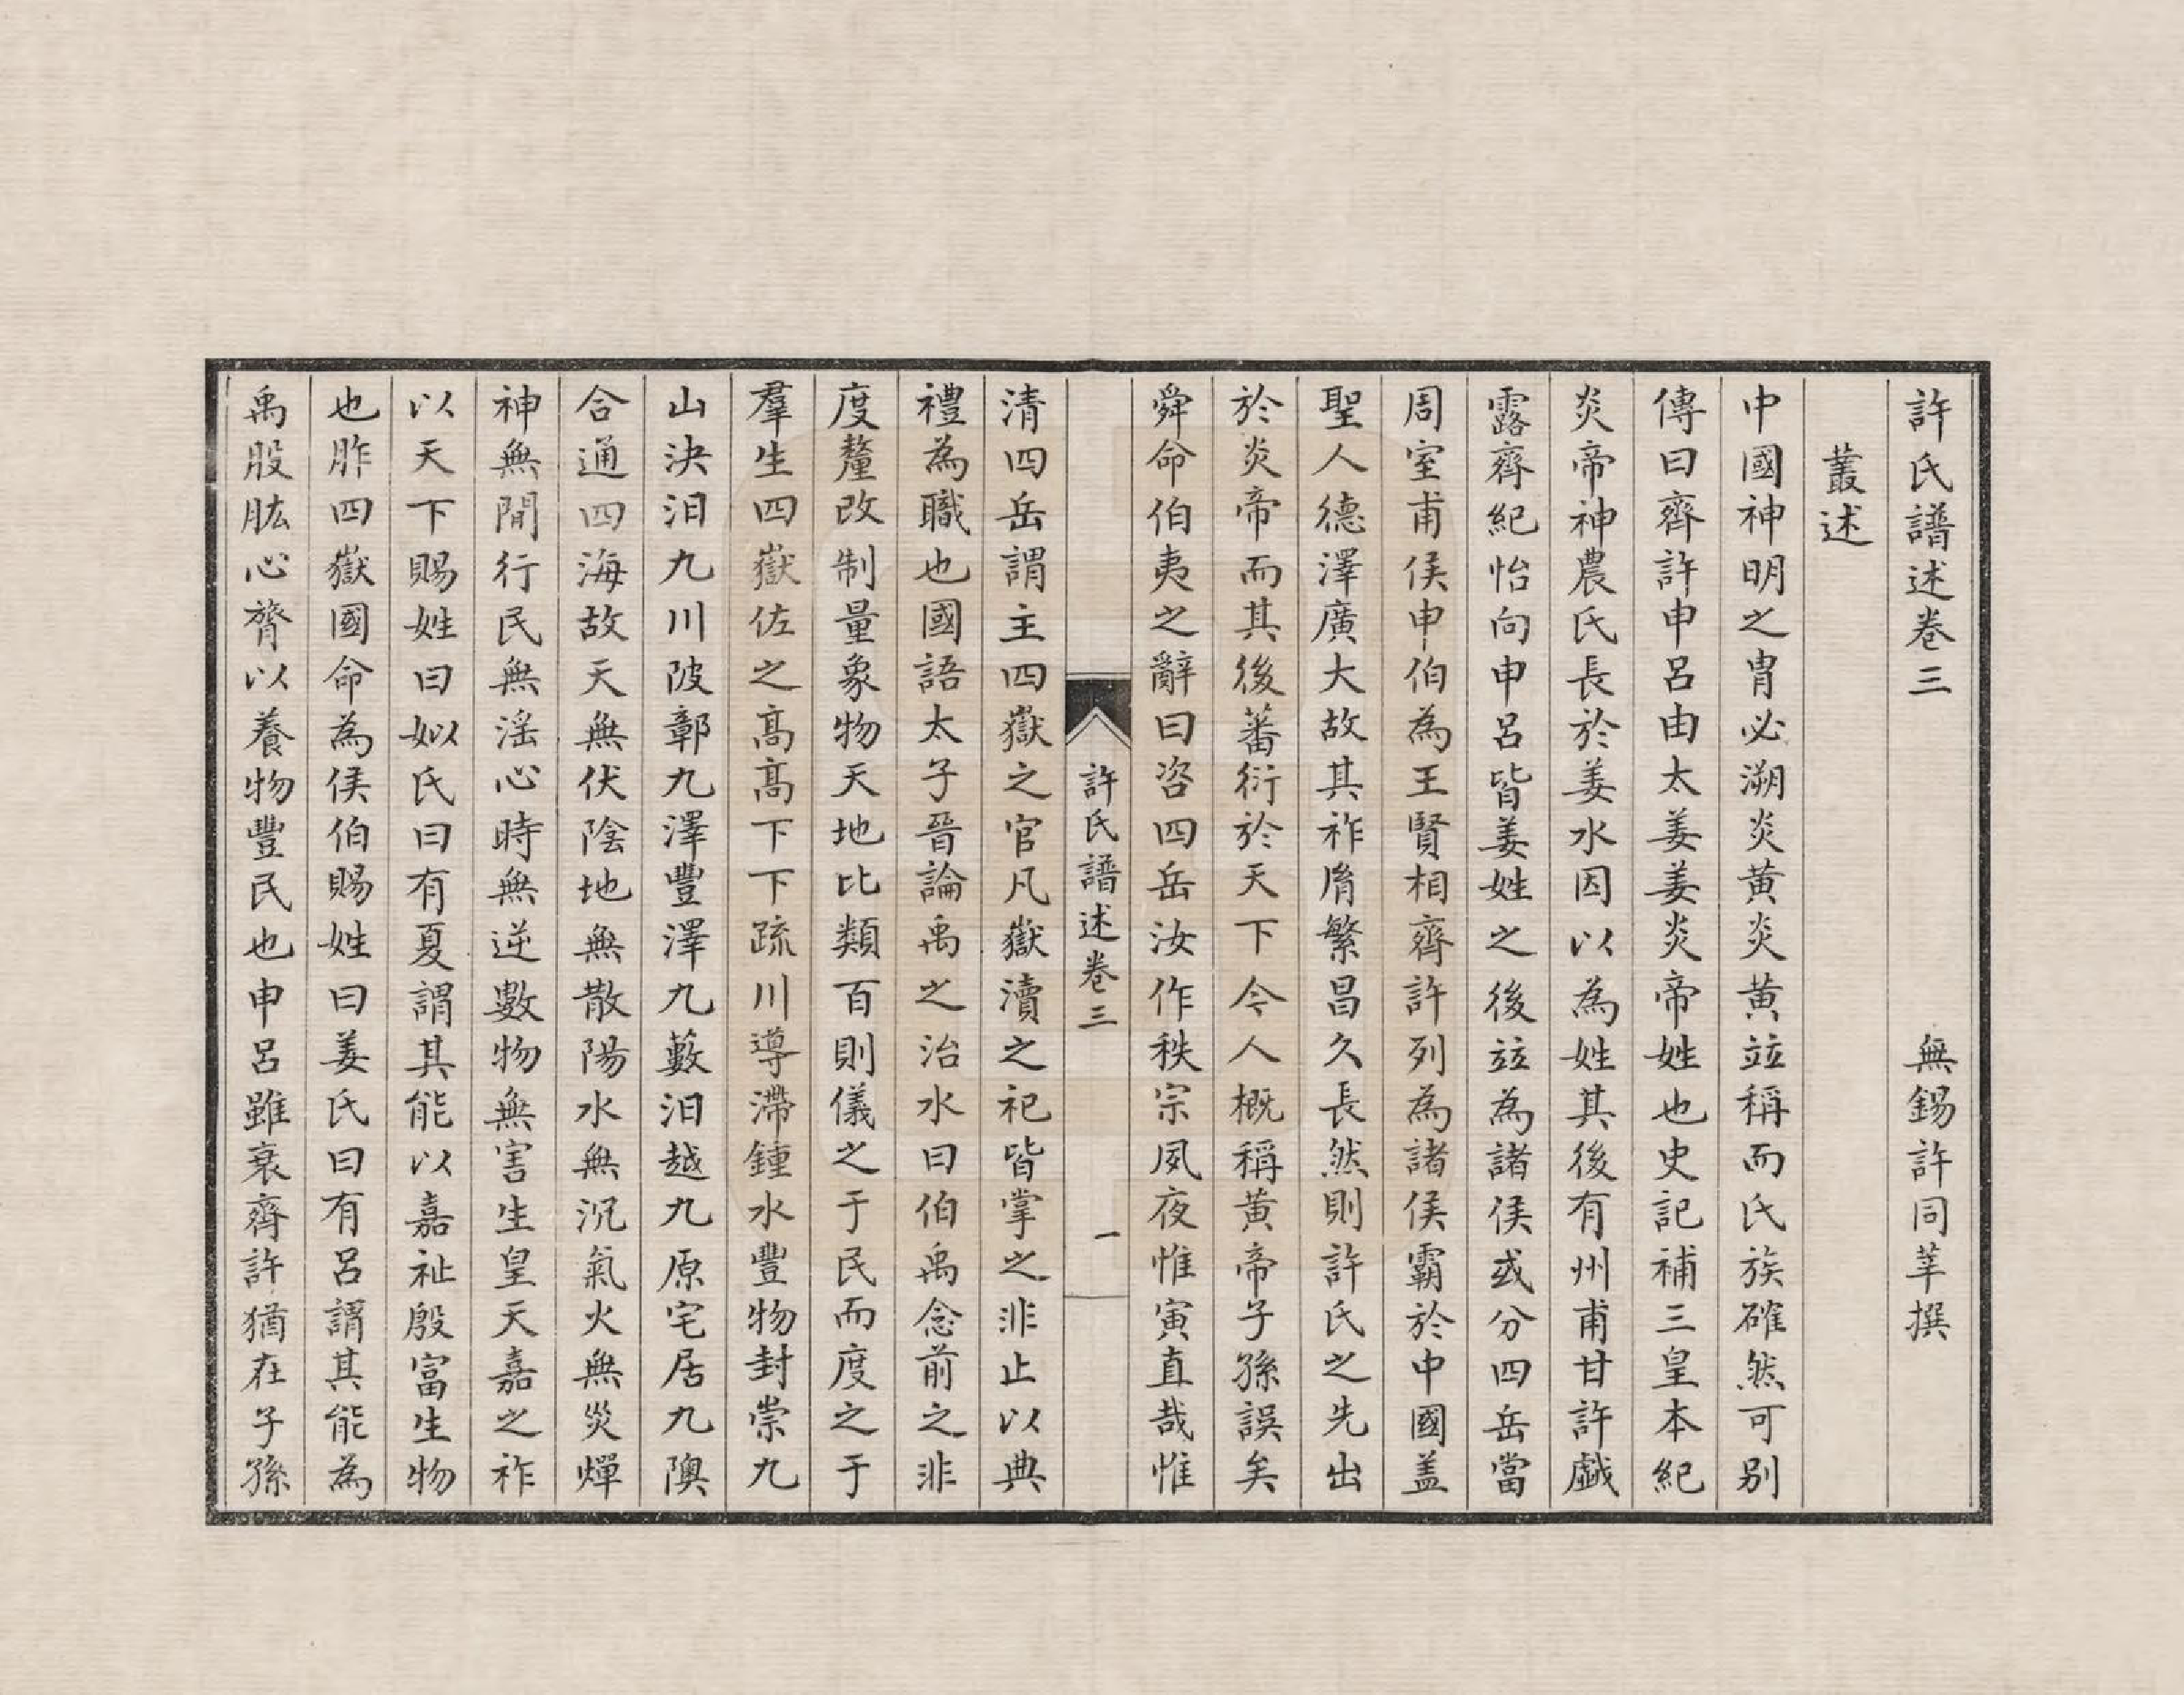 許氏譜述卷三 無錫許同莘撰
叢述
中國神明之胄必溯炎黄炎黄竝稱而氏族確然可别
傳曰齊許申呂由太姜姜炎帝姓也史記補三皇本紀
炎帝神農氏長於姜水因以為姓其後有州甫甘許戲
露齊紀怡向申呂皆姜姓之後竝為諸侯或分四岳當
周室甫侯申伯為王賢相齊許列為諸侯霸於中國盖
聖人德澤廣大故其祚胤繁昌久長然則許氏之先出
於炎帝而其後蕃衍於天下今人概稱黄帝子孫誤矣
舜命伯夷之辭曰咨四岳汝作秩宗夙夜惟寅直哉惟
許氏譜述卷三 一
清四岳謂主四嶽之官凡嶽瀆之祀皆掌之非止以典
禮為職也國語太子晉論禹之治水曰伯禹念前之非
度釐改制量象物天地比類百則儀之于民而度之于
羣生四嶽佐之高高下下疏川導滯鍾水豐物封崇九
山決汨九川陂鄣九澤豐澤九藪汨越九原宅居九隩
合通四海故天無伏陰地無散陽水無沉氣火無災燀
神無閒行民無滛心時無逆數物無害生皇天嘉之祚
以天下賜姓曰姒氏曰有夏謂其能以嘉祉殷富生物
也胙四嶽國命為侯伯賜姓曰姜氏曰有呂謂其能為
禹股肱心膂以養物豐民也申呂雖衰齊許猶在子孫